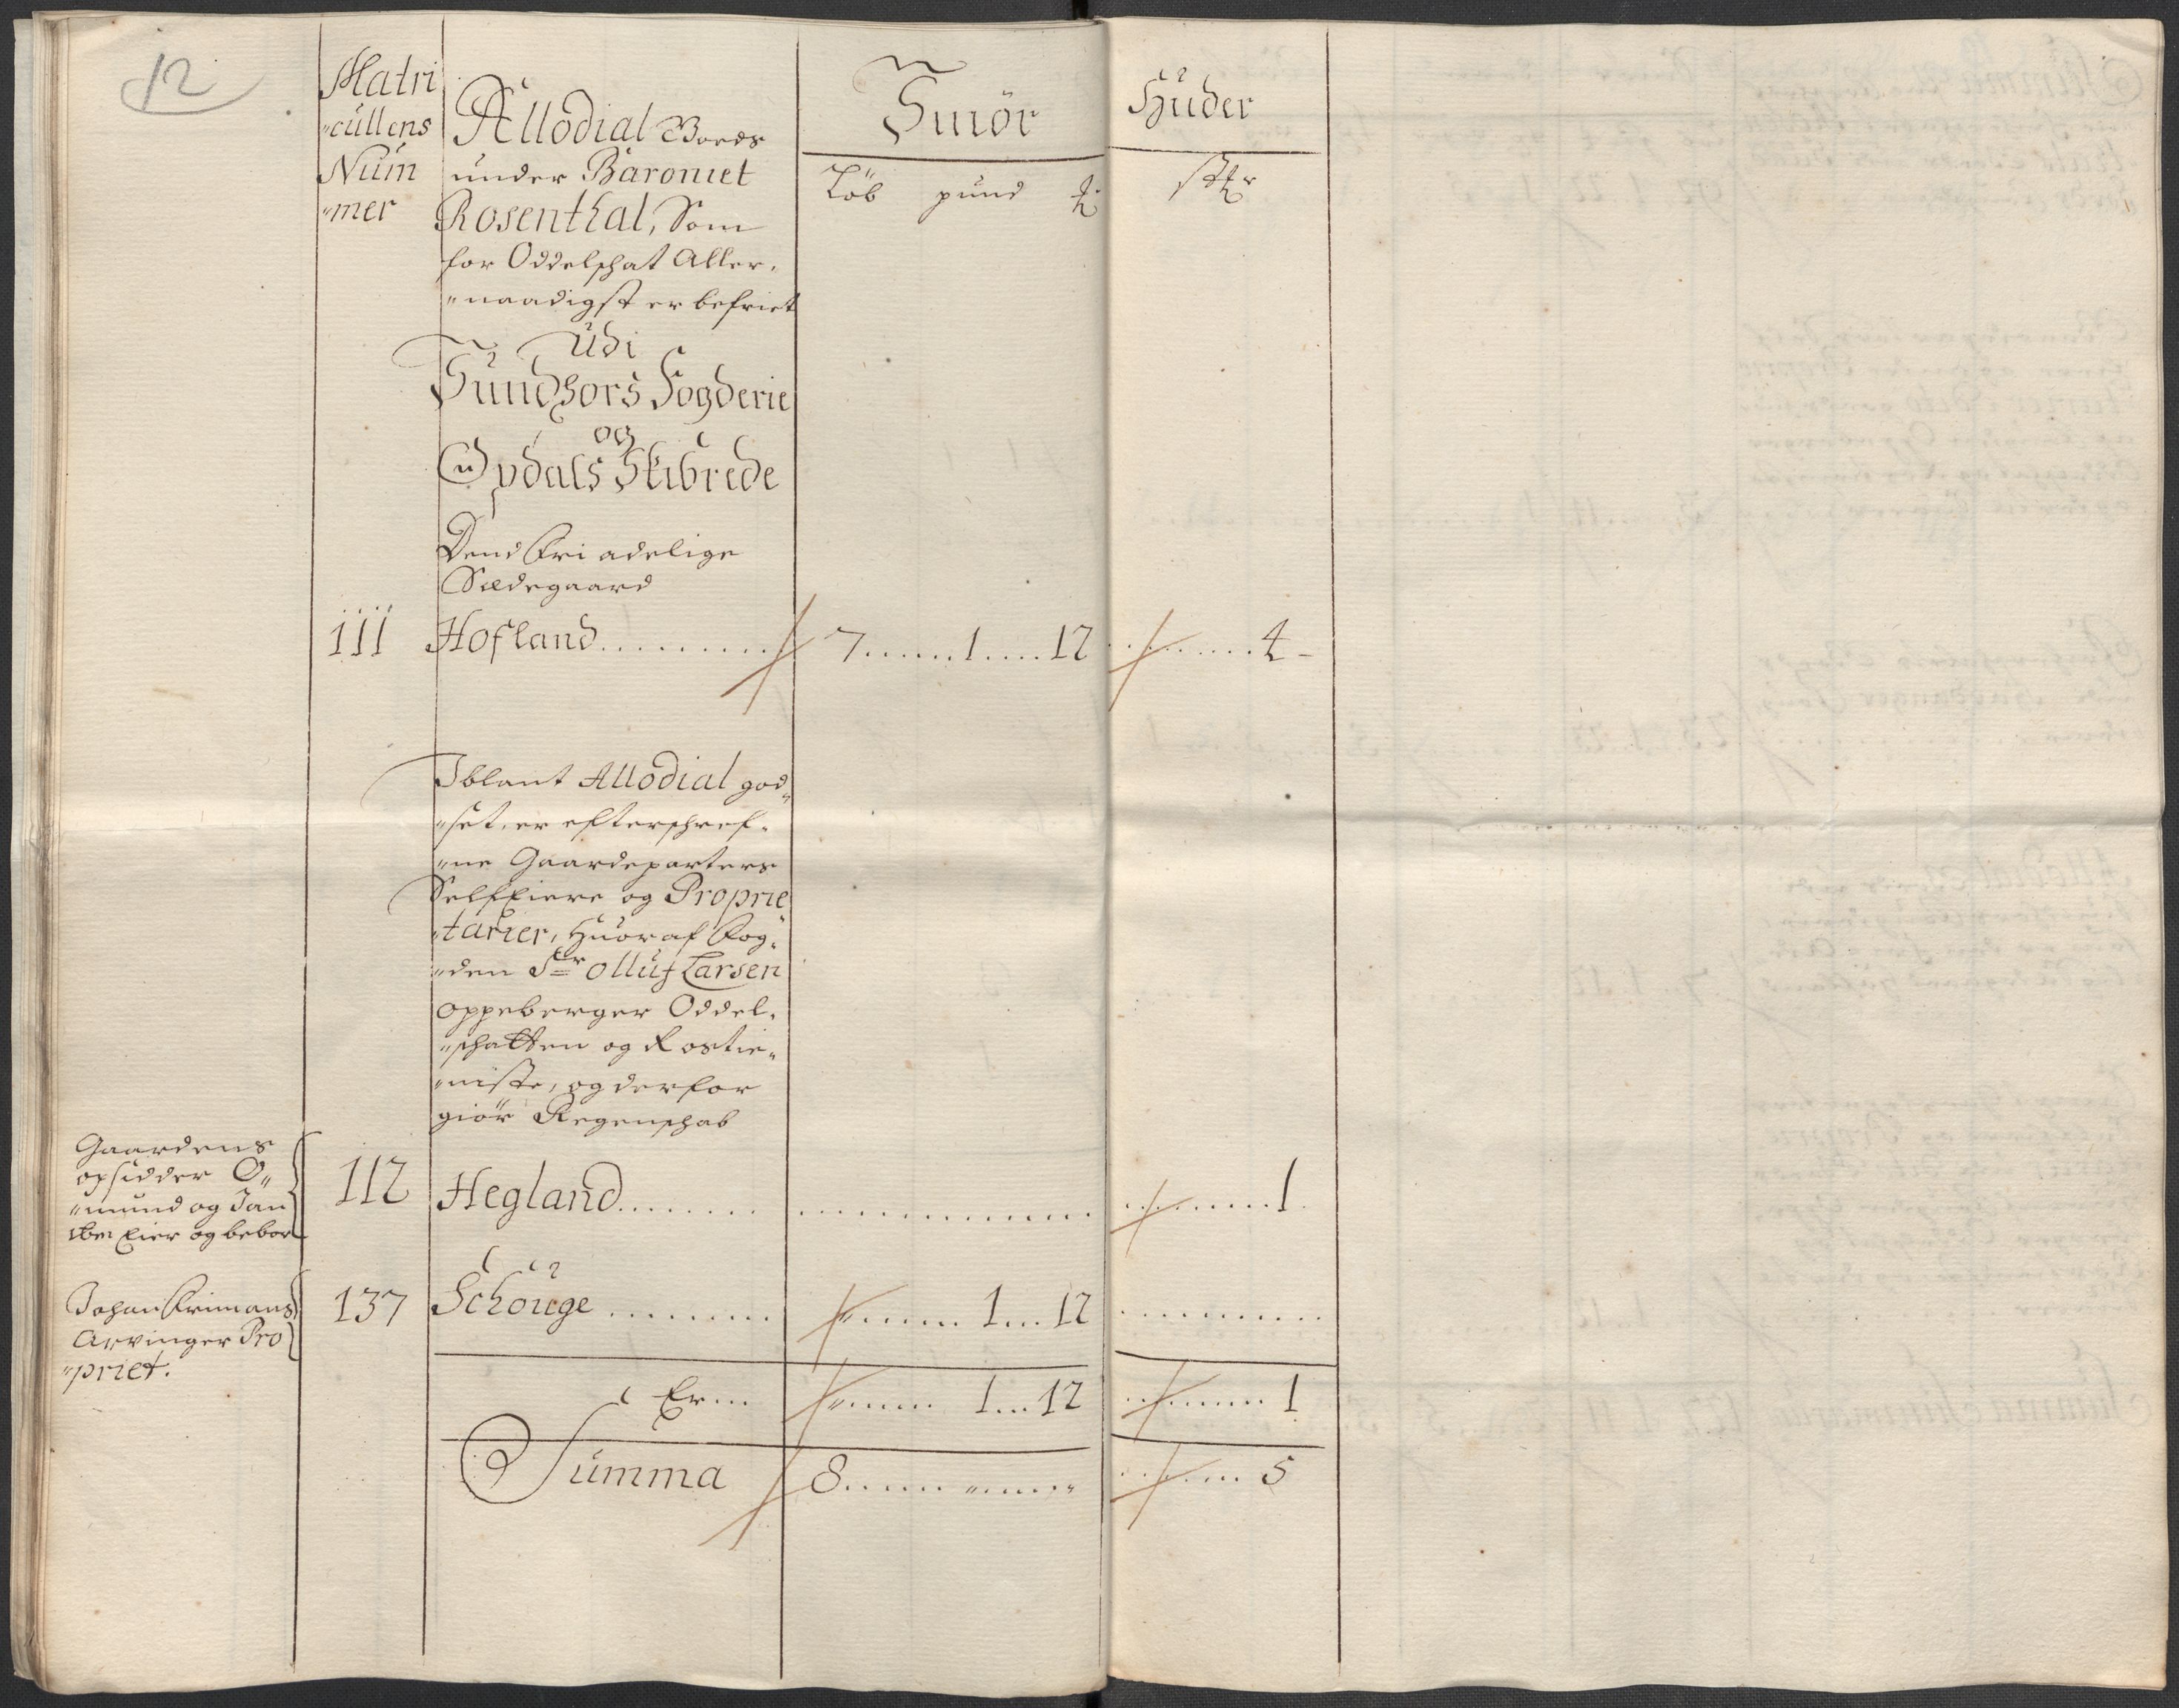 12
Matri
"cüllens
Nüm
"mer
Allodial Bords
under Baroniet
Rosenthal, Som
for Oddelschat Aller,
"naadigst er befriet
Udi
Sündhors Fogderie
og
Opdals Skibrede
Dend fri adelige
Sædegaard
Smör
Löb pund
Hüder
111 Hofland.......... 7......1.....12 ........4-
Iblant Allodial god,,
"set, er efterschref,
"ne Gaardeparters
Selfeiere og Proprie
"tarier, Huoraf Fog,
"den Sr Olluf Larsen
oppeberger Oddel,
"schatten og Rostie,
"niste, og derfor
giör Regenschab
Gaardens
opsidder O,,
"mund og Jan
Eier og bebor
112 Hegland........ ................ ........1.
Johan Frimans
Arvinger Pro
"priet.
137 Schouge ......... "...... 1...12 ............
Er... "...... 1...12 ........ 1
Summa 8...... "......" ....... 5